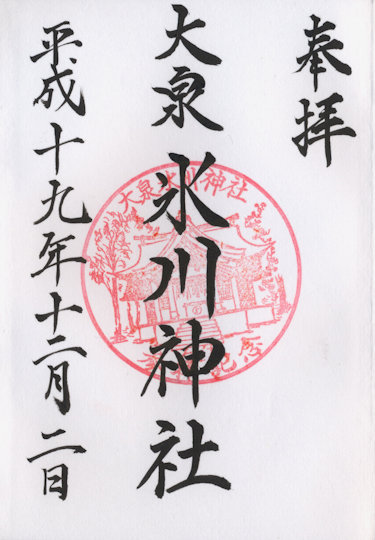 奉拝
大泉
氷川神社
平成十九年十二月二日
大泉氷川神社
参拝記念